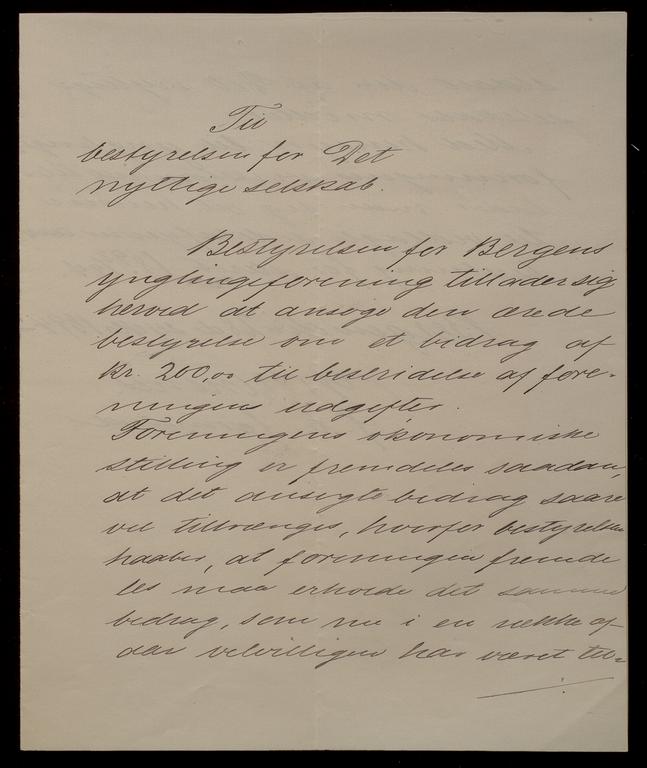 Til
bestyrelsen for Det
nyttige selskab.
Bestyrelsen for Bergens
ynglingeforening tillader sig
herved at ansøge den ærede
bestyrelse om et bidrag af
kr. 200,00 til bestridelse af fore-
ningens udgifter.
Foreningens økonomiske
stilling er fremdeles saadan,
at det ansøgte bidrag saare
vel tiltrænges, hvorfor bestyrelsen
haaber, at foreningen fremde
les maa erholde det samme
bidrag, som nu i en række af
aar velvilligen har været til-